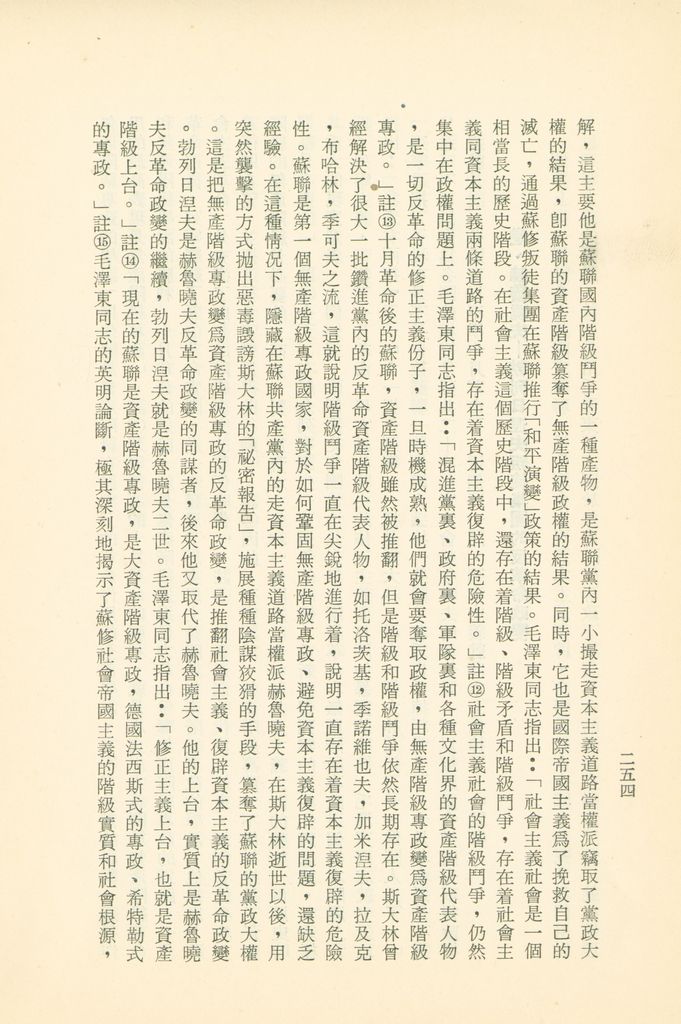 二五四
解，這主要他是蘇聯國內階級鬥爭的一種產物，是蘇聯黨內一小撮走資本主義道路當權派竊取了黨政大
權的結果，卽蘇聯的資產階級篡奪了無產階級政權的結果。同時，它也是國際帝國主義爲了挽救自己的
滅亡，通過蘇修叛徒集團在蘇聯推行「和平演變」政策的結果。毛澤東同志指出：「社會主義社會是一個
相當長的歷史階段。在社會主義這個歷史階段中，還存在着階級、階級矛盾和階級鬥爭，存在着社會主
義同資本主義兩條道路的鬥爭，存在着資本主義復辟的危險性。」註⑫社會主義社會的階級鬥爭，仍然
集中在政權問題上。毛澤東同志指出：「混進黨裏、政府裏、軍隊裏和各種文化界的資產階級代表人物
，是一切反革命的修正主義份子，一旦時機成熟，他們就會要奪取政權，由無產階級專政變爲資產階級
專政。」註⑬十月革命後的蘇聯，資產階級雖然被推翻，但是階級和階級鬥爭依然長期存在。斯大林曾
經解決了很大一批鑽進黨內的反革命資產階級代表人物，如托洛茨基，季諾維也夫，加米涅夫，拉及克
，布哈林，季可夫之流，這就說明階級鬥爭一直在尖銳地進行着，說明一直存在着資本主義復辟的危險
性。蘇聯是第一個無產階級專政國家，對於如何鞏固無產階級專政、避免資本主義復辟的問題，還缺乏
經驗。在這種情况下，隱藏在蘇聯共產黨內的走資本主義道路當權派赫魯曉夫，在斯大林逝世以後，用
突然襲擊的方式抛出惡毒譭謗斯大林的「祕密報告」，施展種種陰謀狡猾的手段，篡奪了蘇聯的黨政大權
。這是把無產階級專政變爲資產階級專政的反革命政變，是推翻社會主義、復辟資本主義的反革命政變
。勃列日涅夫是赫魯曉夫反革命政變的同謀者，後來他又取代了赫魯曉夫。他的上台，實質上是赫魯曉
夫反革命政變的繼續，勃列日涅夫就是赫魯曉夫二世。毛澤東同志指出：「修正主義上台，也就是資產
階級上台。」註⑭「現在的蘇聯是資產階級專政，是大資產階級專政，德國法西斯式的專政、希特勒式
的專政。」註⑮毛澤東同志的英明論斷，極其深刻地揭示了蘇修社會帝國主義的階級實質和社會根源，